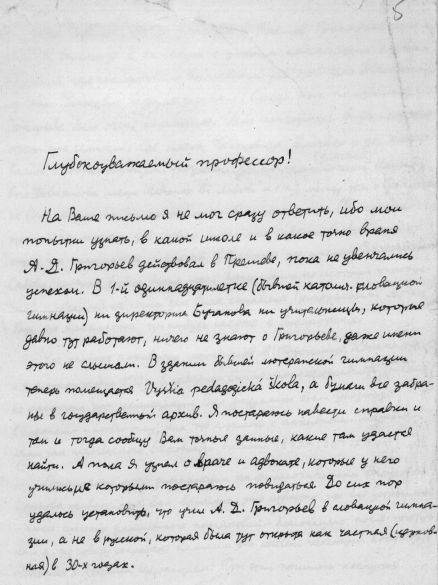 5
Глубокоуважаемый профессор!
На Ваше письмо я не мог сразу ответить, ибо мои
попытки узнать, в какой школе и в какое точно время
А. Д. Григорьев действовал в Прешеве, пока не увенчались
успехом. В 1-й одиннадцатилетке (бывшей католич. словацкой
гимназии) ни директорша ни учительницы, которые
давно тут работают, ничего не знают о Григорьеве, даже имени
этого не слыхали. В здании бывшей лютеранской гимназии
теперь помещается Vyššia pedagogická škola, а бумаги все забра-
ны в государственный архив. Я постараюсь навести справки и
там и тогда сообщу Вам точные данные, какие там удастся
найти. А пока я узнал о враче и адвокате, которые у него
учились и с которыми постараюсь повидаться. До сих пор
удалось установить, что учил А. Д. Григорьев в словацкой гимна-
зии, а не в русской, которая была тут открыта как частная (церков-
ная) в 30-х годах.